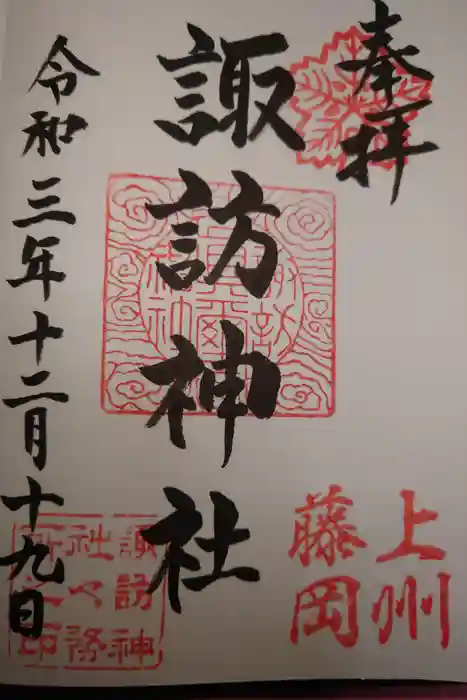 奉拝
上州
藤岡
諏訪神社
令和三年十二月十九日
諏訪神
社々務